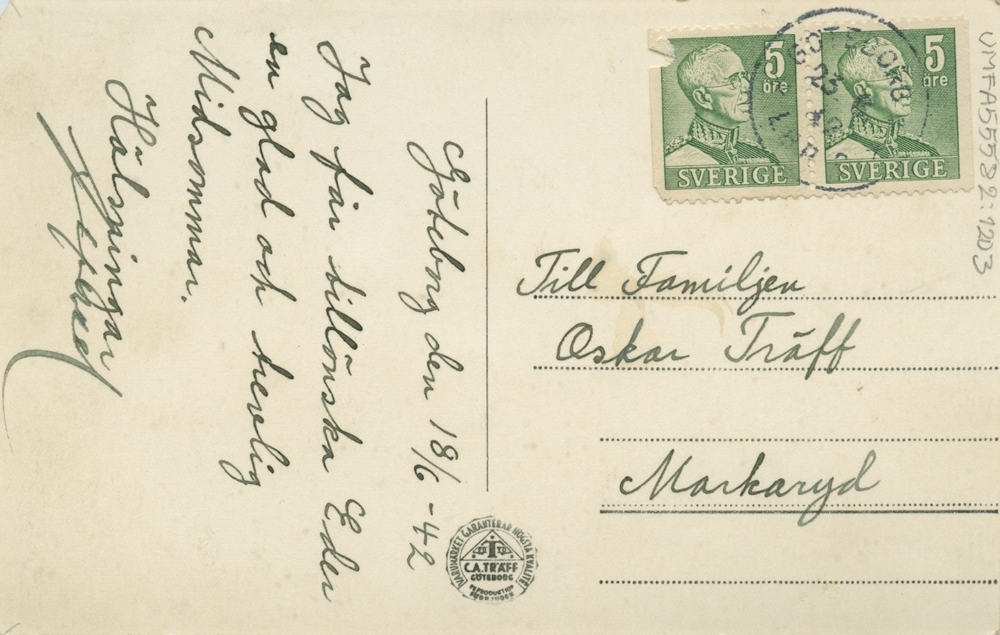 Göteborg den 18/6 -42
Jag får tillönska Eder
en glad och trevlig
Midsommar.
Hälsningar
5
öre
SVERIGE
5
öre
SVERIGE
GÖTEBORG
23
Till Familjen
Oskar Träff
Markaryd
VARUMÄRKET GARANTERAR HÖGSTA KVALITET
C.A. TRÄFF
GÖTEBORG
REPRODUKTION
FÖRBJUDES
UMFA55532:1203